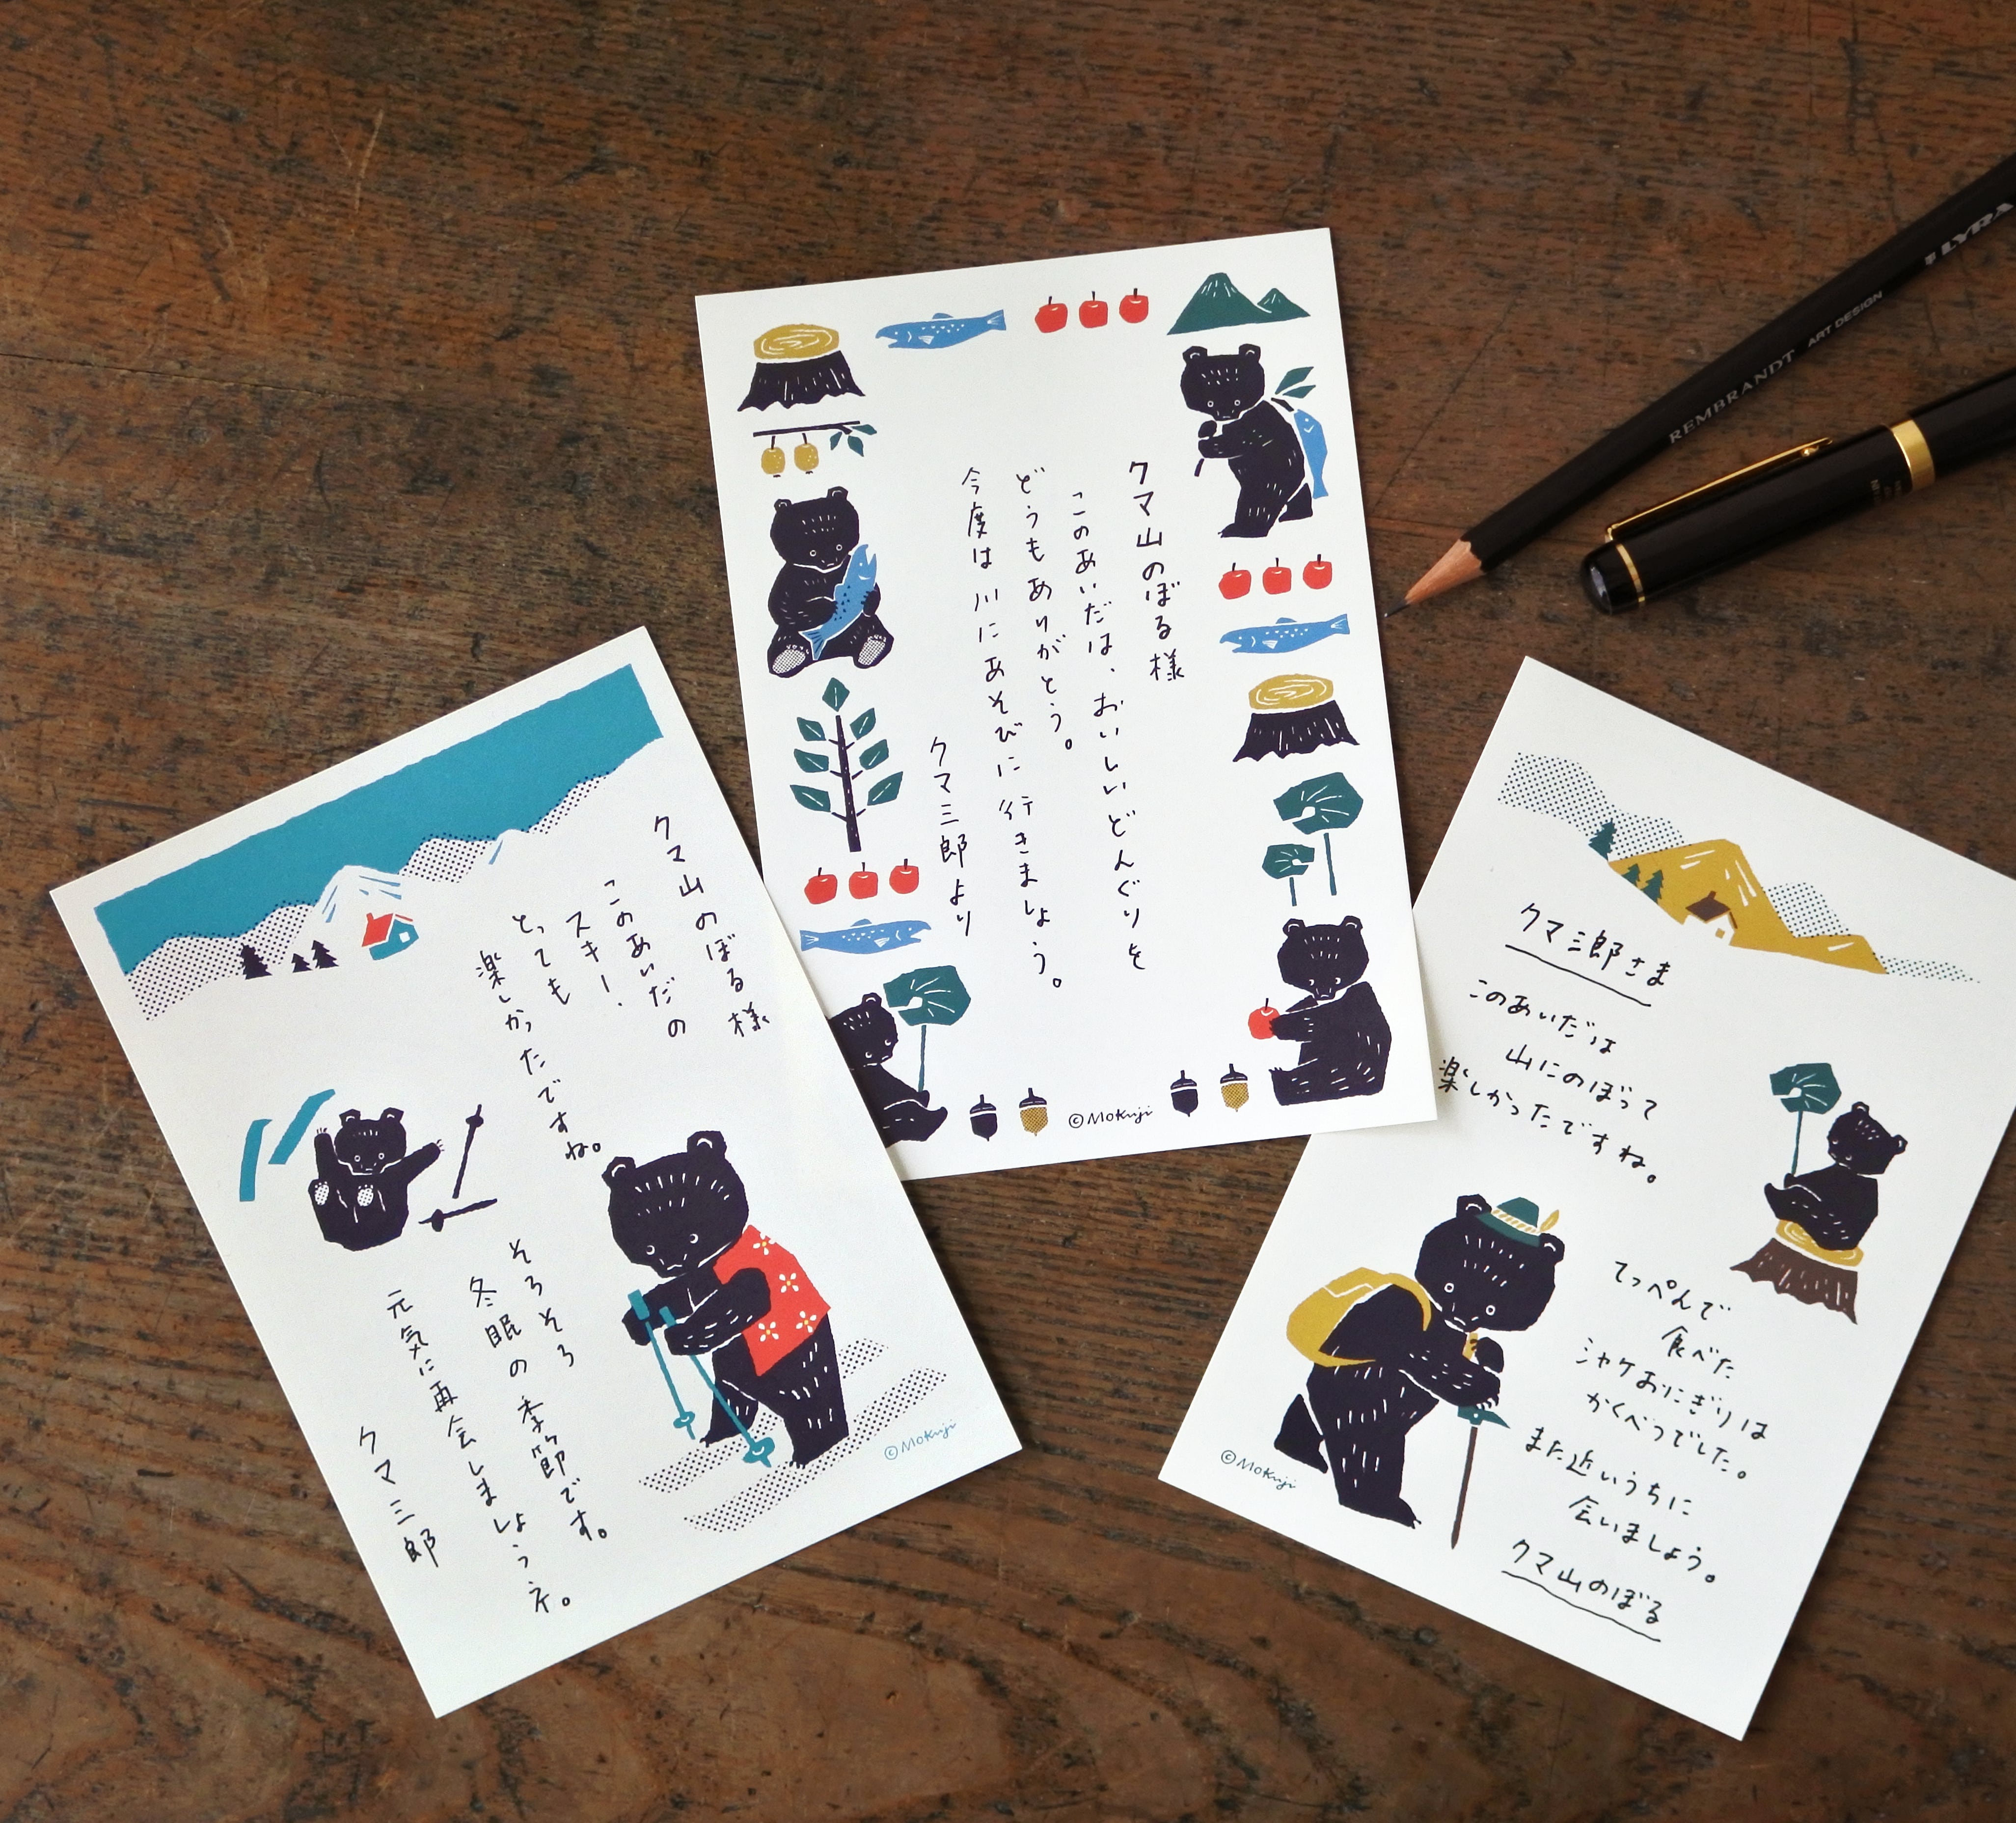 クマ山のぼる様
このあいだの
スキー、
とっても
楽しかったですね。
そろそろ
冬眠の季節です。
元気に再会しましょうネ。
クマ三郎
©Mokuji
クマ山のぼる様
このあいだは、おいしいどんぐりを
どうもありがとう。
今度は川にあそびに行きましょう。
クマ三郎より
©Mokuji
クマ三郎さま
このあいだは
山にのぼって
楽しかったですね。
てっぺんで
食べた
シャケおにぎりは
かくべつでした。
また近いうちに
会いましょう。
クマ山のぼる
©Mokuji
LYRA
REMBRANDT ART DESIGN